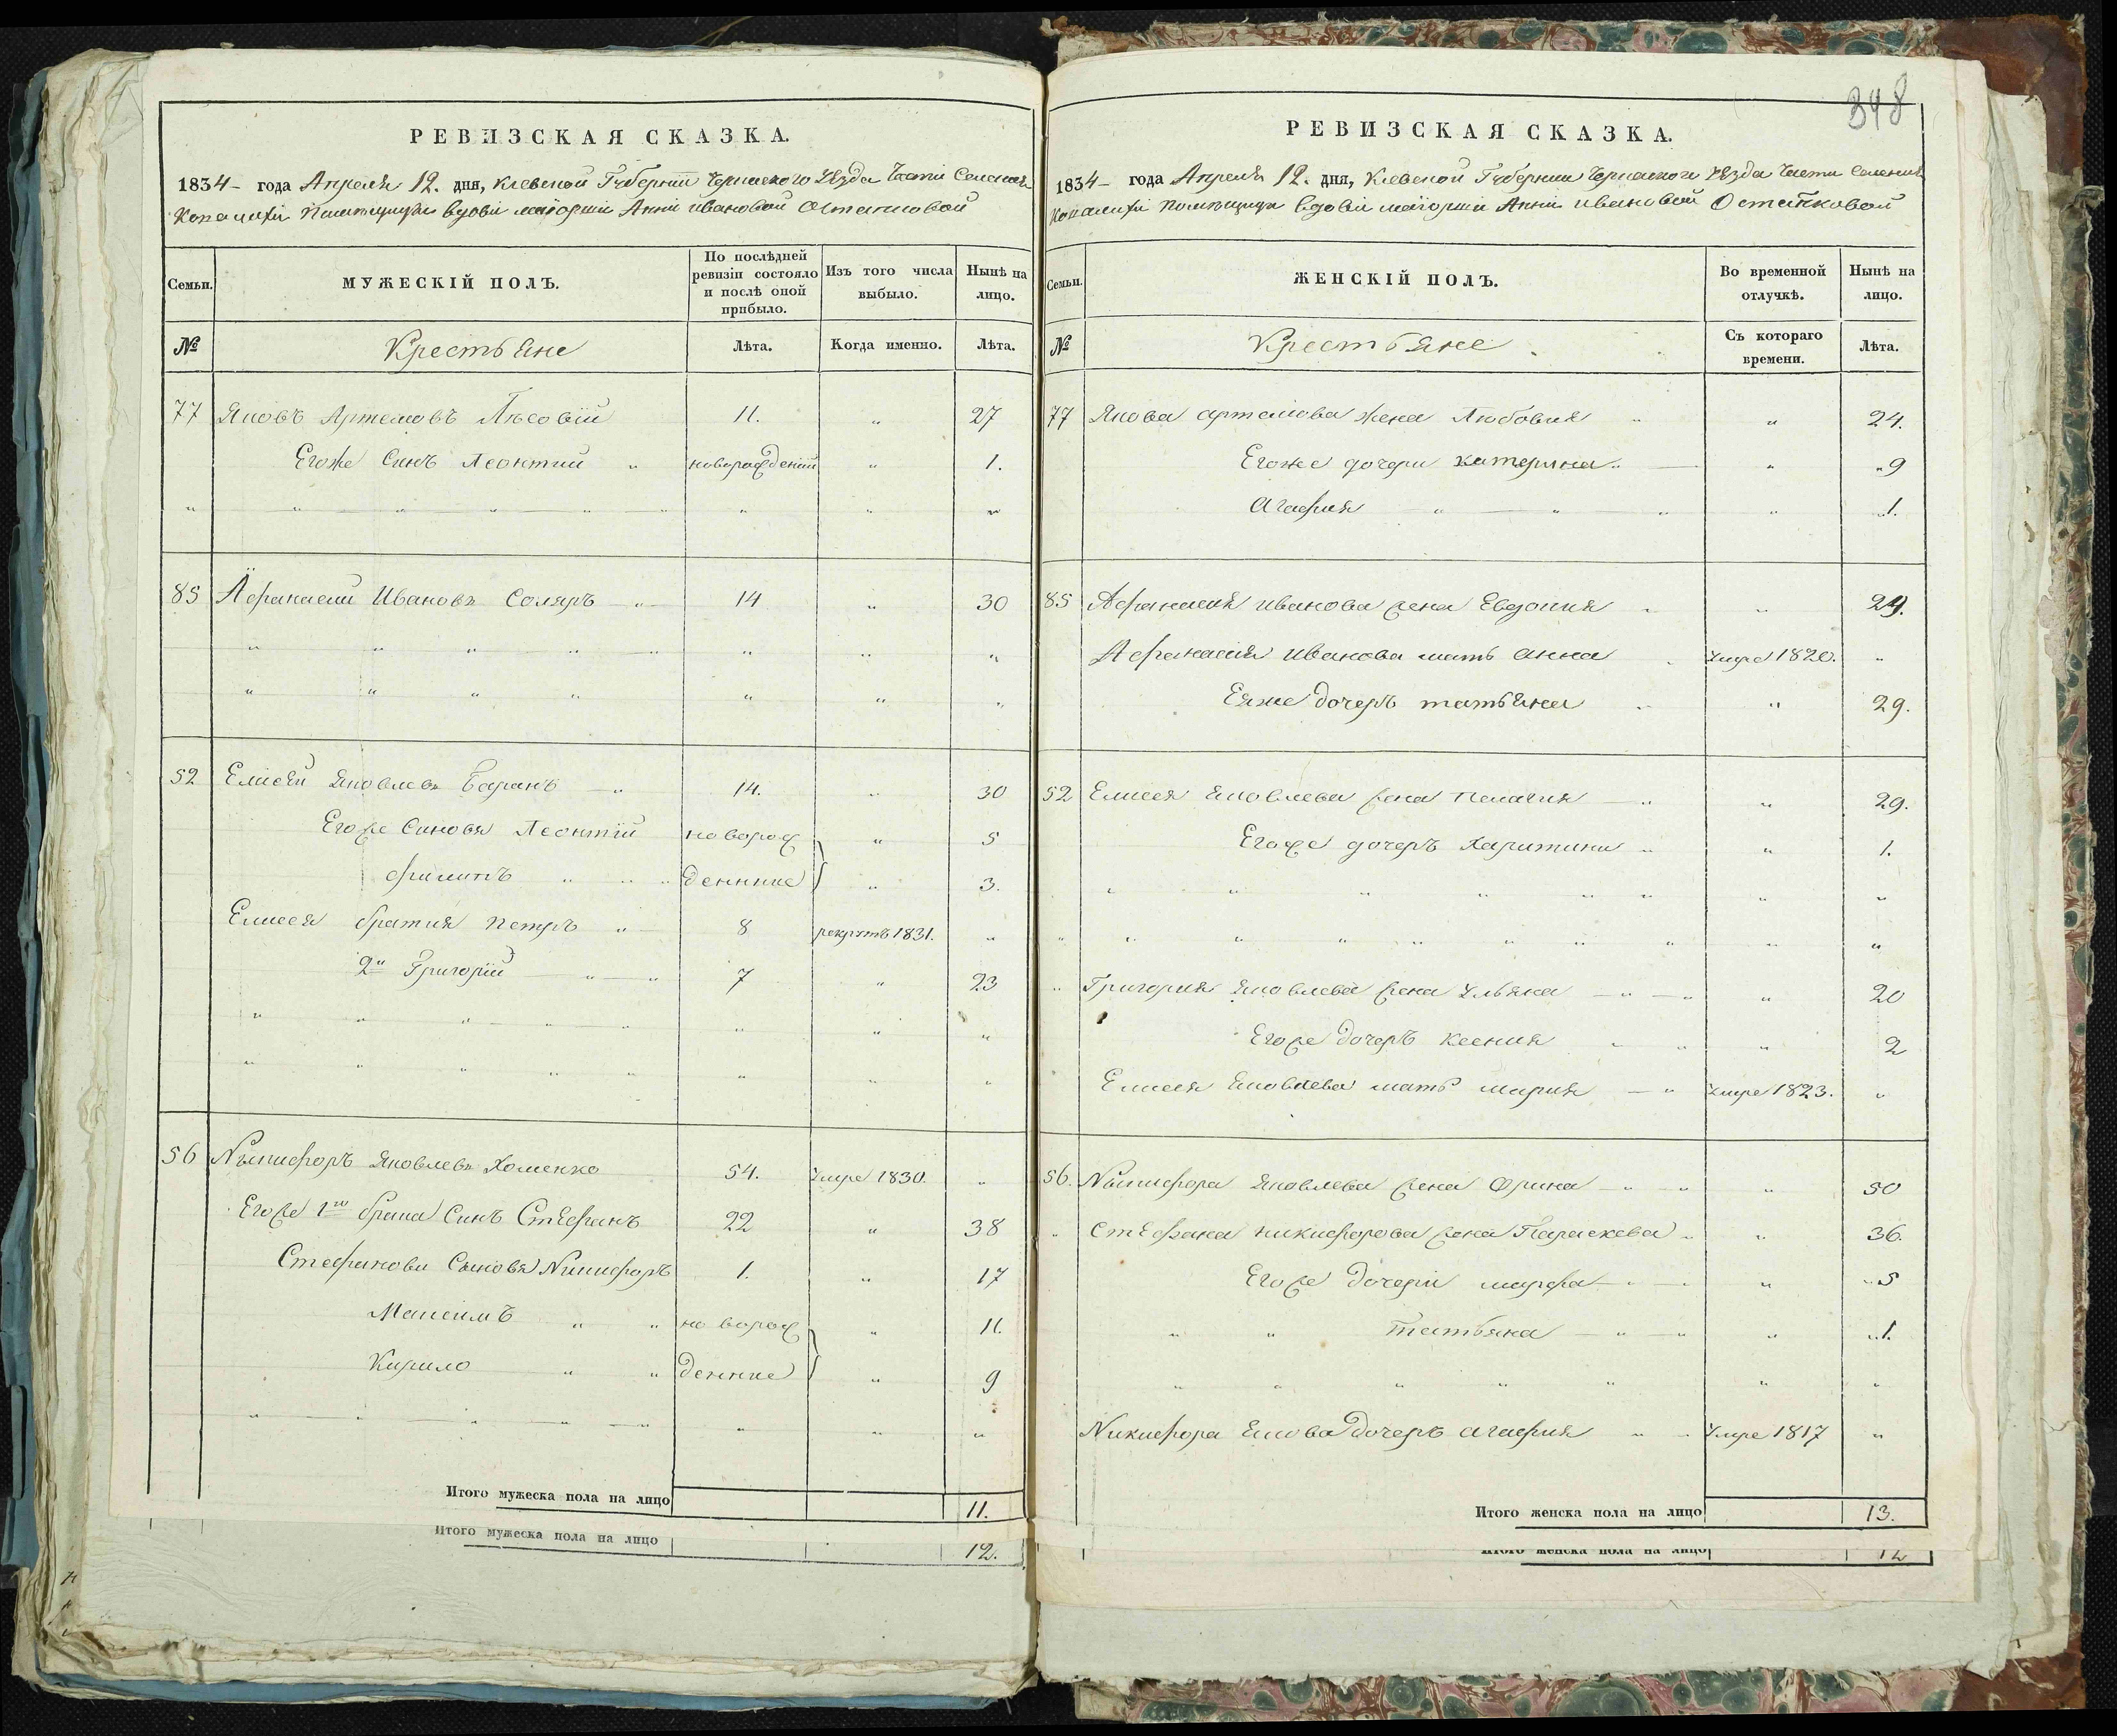 348
РЕВИЗСКАЯ СКАЗКА.
1834 года Апреля 12. дня, Киевской Губернии Черкаского Уезда Части Селения
Копачихи помещицы вдови маіорши Анни Ивановой Остапковой
Семьи.
МУЖЕСКІЙ ПОЛЪ.
По послѣдней ревизіи состояло и послѣ оной прибыло.
Изъ того числа выбыло.
Нынѣ на лицо.
№
Крестьяне
Лѣта.
Когда именно.
Лѣта.
77 Яковъ Артемовъ Лѣсовій 11. " 27
Егоже Синъ Леонтий " новорожденій " 1.
85 Афанасий Ивановъ Соляръ " 14 " 30
52 Елисей Яковлевъ Баранъ " 14. " 30
Егоже Синовя Леонтій новорож " 5
Филипъ " " " денние " 3.
Елисея братия Петръ " 8 рекрутъ 1831. "
2й Григорій " " 7 " 23
56 Никифоръ Яковлевъ Хоменко 54. Умре 1830. "
Егоже 1го брата Синъ Стефанъ 22 " 38
Стефанови Сыновя Никифоръ 1. " 17
Максимъ " " новорож " 11.
Кирило " " денние " 9
Итого мужеска пола на лицо 11.
Итого мужеска пола на лицо 12.
РЕВИЗСКАЯ СКАЗКА.
1834 года Апреля 12. дня, Киевской Губернии Черкаского Уезда Части Селения
Копачихи помещицы вдови маіорши Анни Ивановой Остапковой
Семьи.
ЖЕНСКІЙ ПОЛЪ.
Во временной отлучкѣ.
Нынѣ на лицо.
№
Крестьяне
Съ котораго времени.
Лѣта.
77 Якова Артемова жена Любовия " " 24.
Егоже дочери Катерина " " " 9
Агафия " " " " " 1.
85 Афанасия Иванова жена Евдокия " " 29.
Афанасия Иванова мать Анна " Умре 1820. "
Еяже дочеръ Татьяна " " 29.
52 Елисея Яковлева жена Пелагия " " 29.
Егоже дочеръ Харитина " " 1.
" Григория Яковлева жена Ульяна " " " 20
Егоже дочеръ Ксения " " " 2
Елисея Яковлева мать Мария " Умре 1823. "
56. Никифора Яковлева жена Орина " " " 50
" Стефана Никифорова жена Параскева " " 36.
Егоже дочери Марфа " " " " 5
" " Татьяна " " " " 1.
Никифора Якова дочеръ Агафия " " Умре 1817 "
Итого женска пола на лицо 13.
Итого женска пола на лицо 12